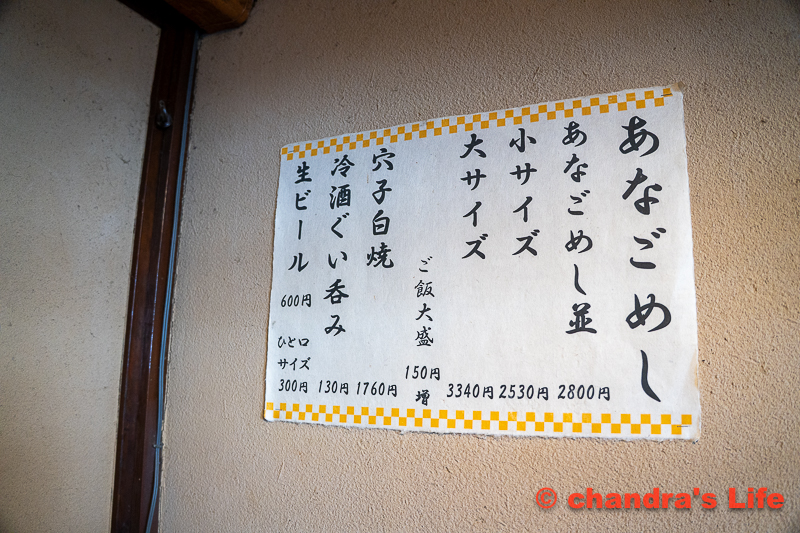 あなごめし
あなごめし並 2800円
小サイズ 2530円
大サイズ 3340円
ご飯大盛 150円増
穴子白焼 1760円
冷酒ぐい呑み 130円
生ビール 600円
ひと口
サイズ
300円
© chandra's Life